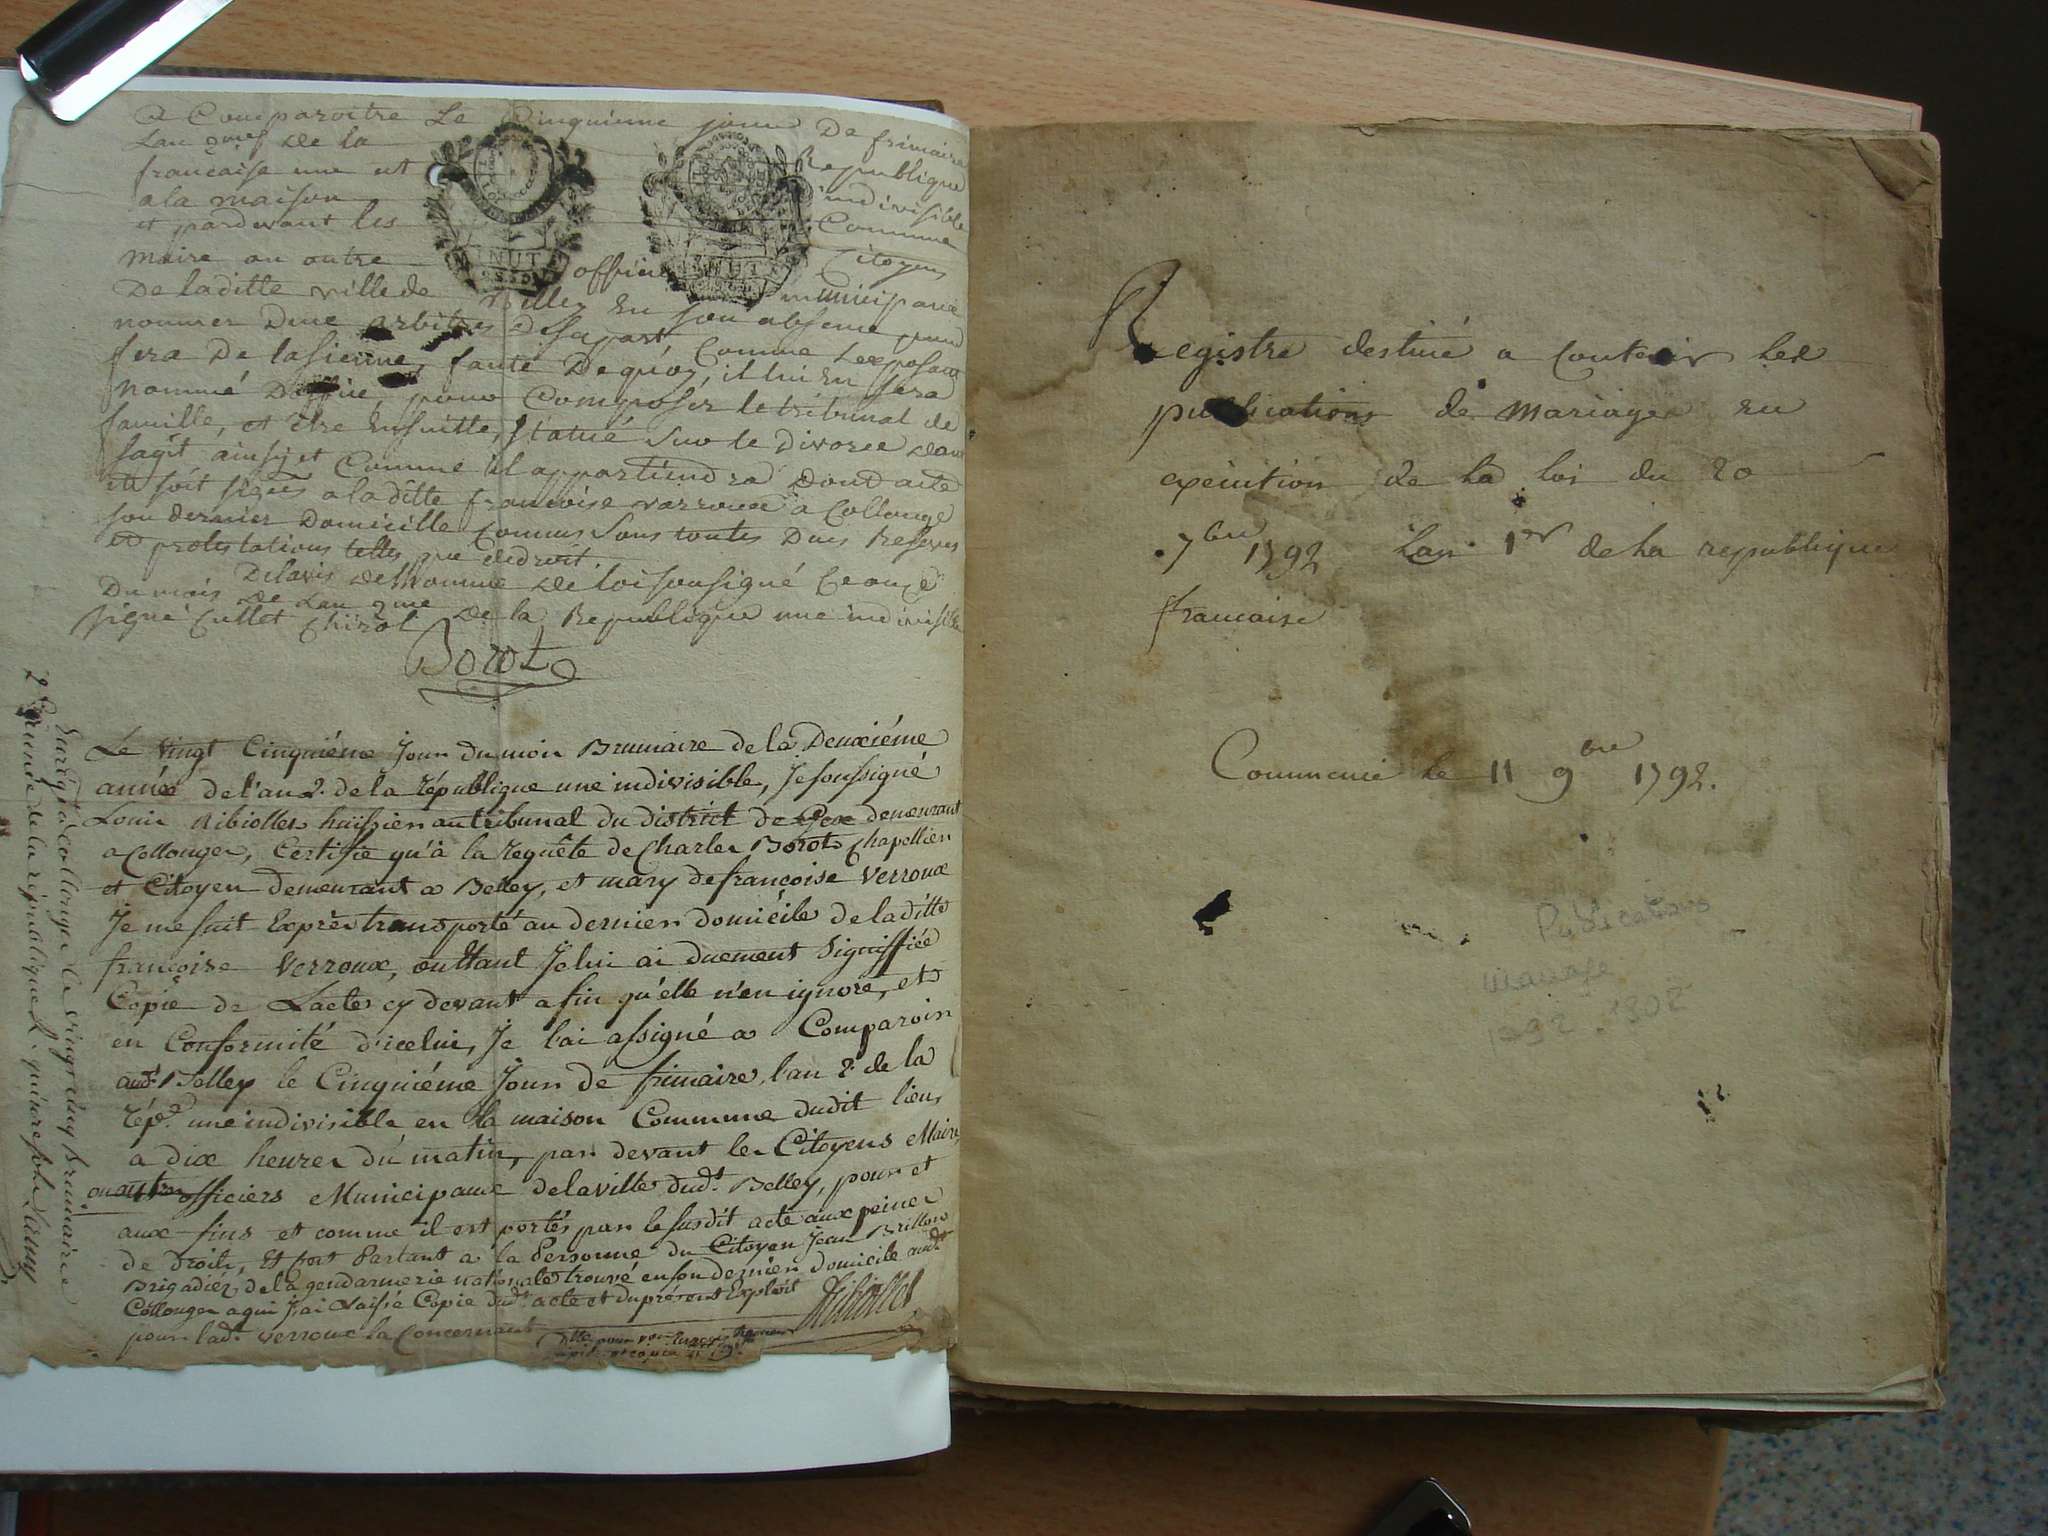 a Comparoitre Le Cinquieme jour De frimaire
Lan 2me de la Republique
francaise une et indivisible
a la maison Commune
et pardevant les Citoyens
Maire ou autre officier municipaux
De laditte ville de Belley En son absence pour
nommer Deux arbitres De sa part Comme Lexposant
fera De la sienne, faute De quoy, il lui En sera
nommé Doffice, pour Composer le tribunal de
famille, et être Ensuitte, statué sur le Divorce dont
sagit ainsy et Comme il appartiendra Dont acte
soit signés a laditte francoise varroux a Collonge
son dernier Domicille Connus Sous toutes Dues Reserves
et protestations telles que dedroit.
Delavis de lhomme de loi sousigné Ce onze
Du mois de Lan 2me de la Republique une indivisible
signé Cullet Chirol
Borot
Le vingt Cinquiéme Jour du mois Brumaire de la Deuxiéme
année de l'an 2. de la république une indivisible, Je soussigné
Louis Ribiollet huissier au tribunal du district de Gex demeurant
a Collonges, Certifie qu'à la requête de Charles Borot Chapellier
et Citoyen demeurant a Belley, et mary de françoise Verroux
Je me suit Exprès transporté au dernier domicile de laditte
françoise Verroux, ou Etant Je lui ai duement Signiffiée
Copie de Lacte cy devant afin qu'elle n'en ignore, et
en Conformité d'icelui, Je l'ai assigné a Comparoir
aud.t Belley le Cinquiéme Jour de frimaire, l'an 2.e de la
répe. une indivisible en la maison Commune dudit lieu,
a dix heures du matin, par devant les Citoyens Maire,
ou autre officiers Municipaux de la ville dud.t Belley, pour et
aux fins et comme il est portés par le susdit acte aux peines
de droits, Et fait Parlant a la Personne du Citoyen Jean Brillon
Brigadier de la gendarmerie nationale trouvé en son dernier domicile aud.t
Collonges a qui J'ai Laissé Copie dud.t acte et du présent Exploit
pour lad.te Verroux la Concernant
Ribiollet
Enregtré à Collonges le vingt cinq brumaire
2e année de la république R. quinze sols Lamy
Registre destiné a contenir les
publications de mariages en
execution de la loi du 20
7bre 1792 Lan 1er de la republique
francaise
Commencé le 11 9bre 1792.
Publications
mariage
1792-1802